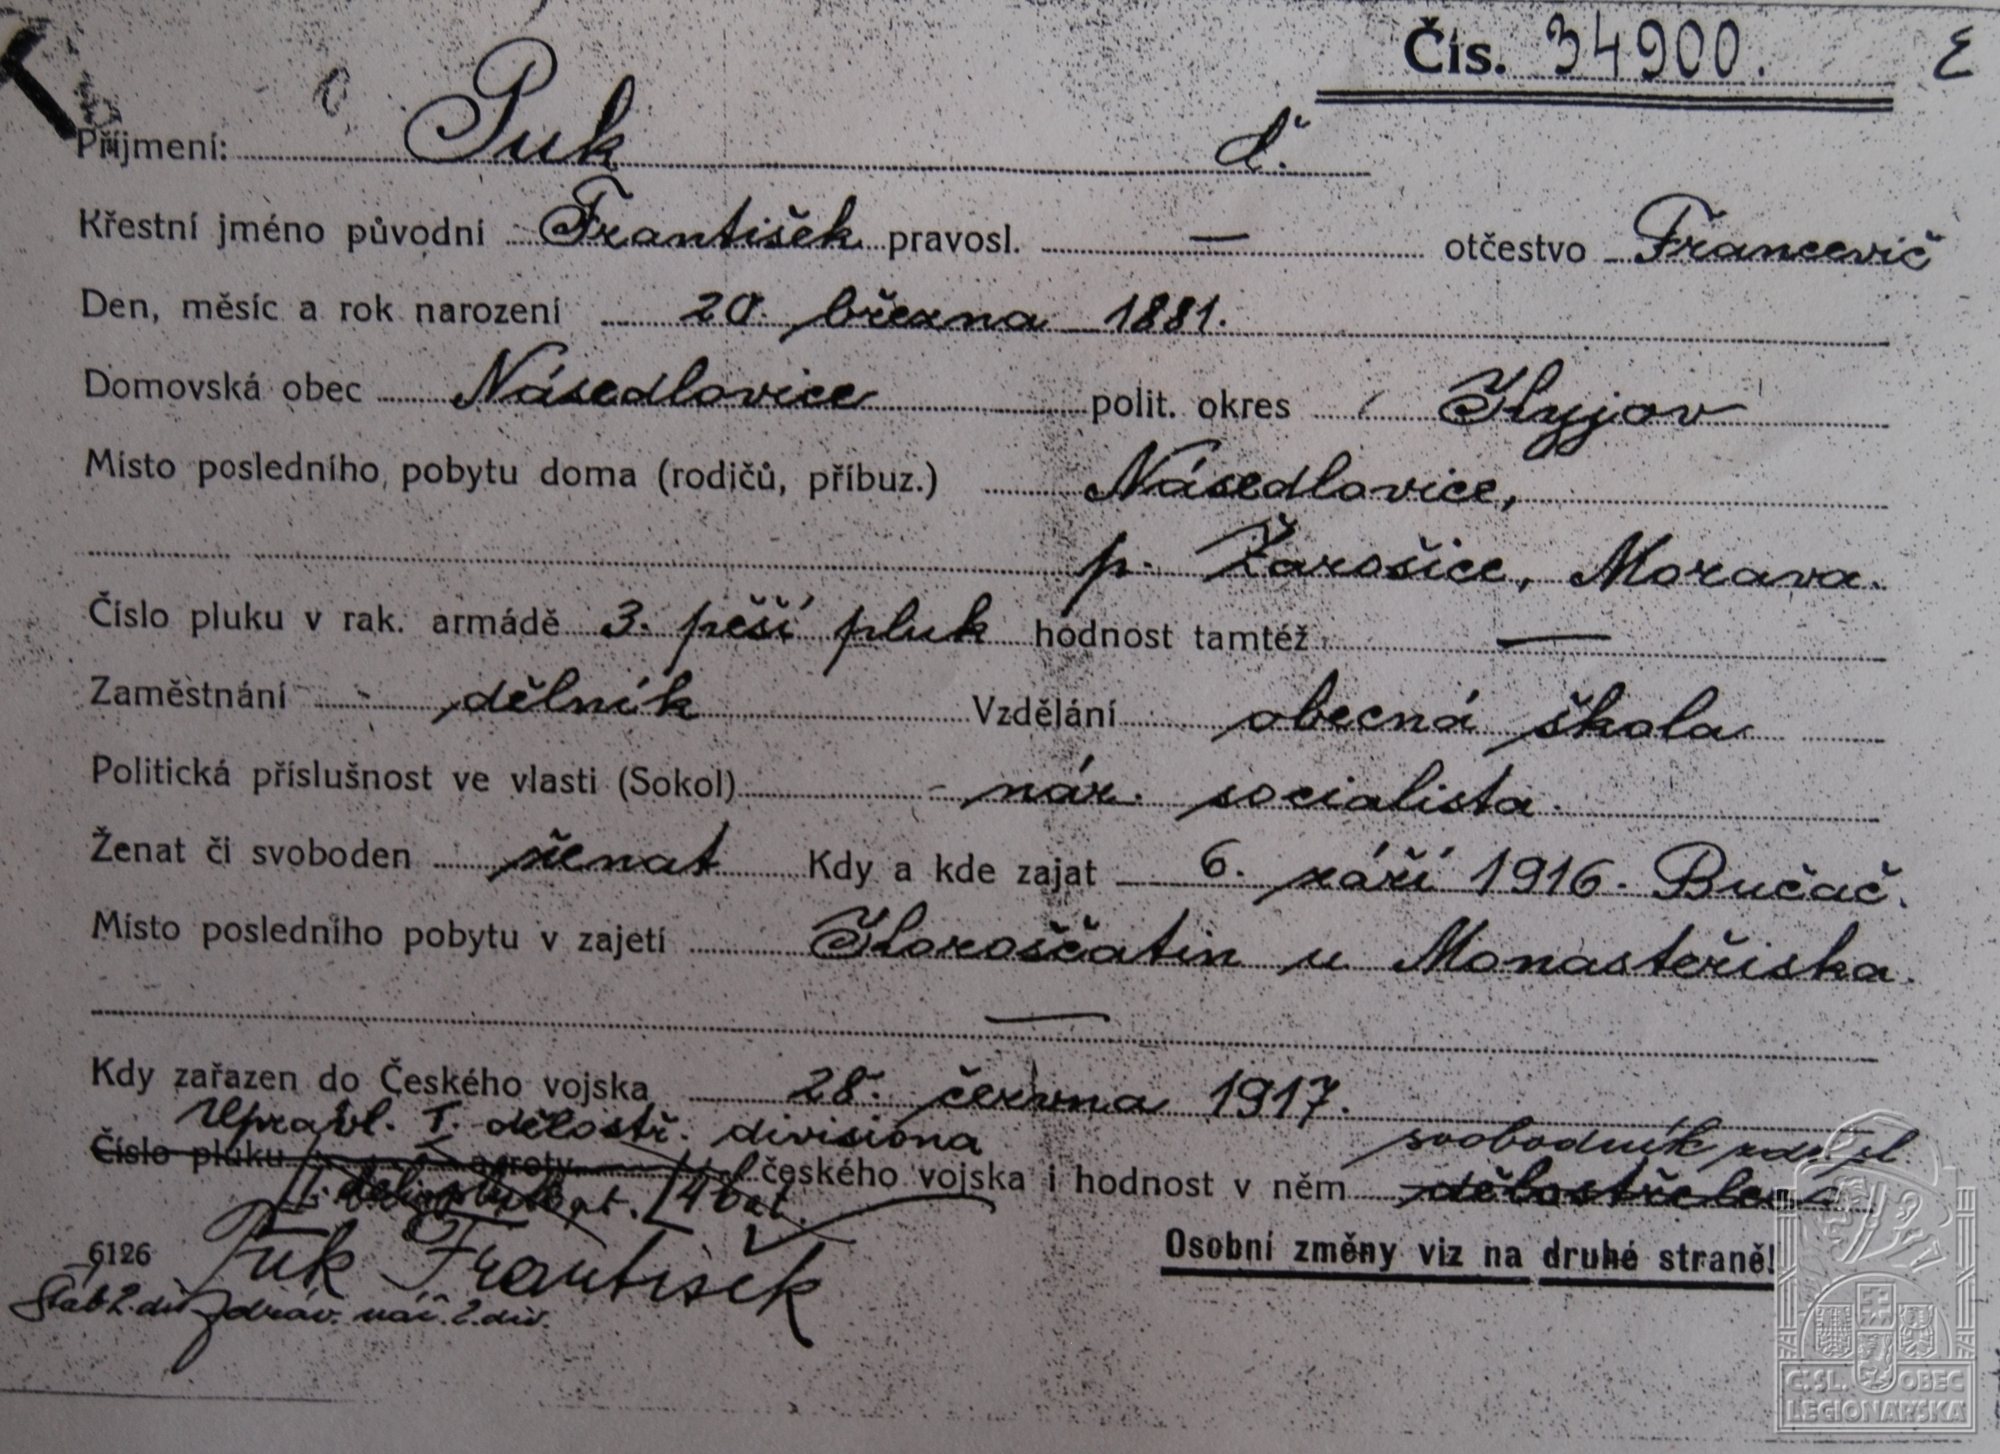 Čís. 34900. E
Příjmení: Puk ď.
Křestní jméno původní František pravosl. — otčestvo Francevič
Den, měsíc a rok narození 20. března 1881.
Domovská obec Násedlovice polit. okres Kyjov
Místo posledního pobytu doma (rodičů, příbuz.) Násedlovice,
p. Žarošice, Morava.
Číslo pluku v rak. armádě 3. pěší pluk hodnost tamtéž —
Zaměstnání dělník Vzdělání obecná škola
Politická příslušnost ve vlasti (Sokol) nár. socialista.
Ženat či svoboden ženat Kdy a kde zajat 6. září 1916. Bučač.
Místo posledního pobytu v zajetí Horoščatin u Monasteřiska.
—
Kdy zařazen do Českého vojska 28. června 1917.
Upravl. I. dělostř. divisiona svobodník
Číslo pluku a roty českého vojska i hodnost v něm dělostřelec
14 bat.
Puk František
Osobní změny viz na druhé straně!
6126
Štáb 2. div zdráv. nář. 2. div.
Č. SL. OBEC
LEGIONÁŘSKÁ